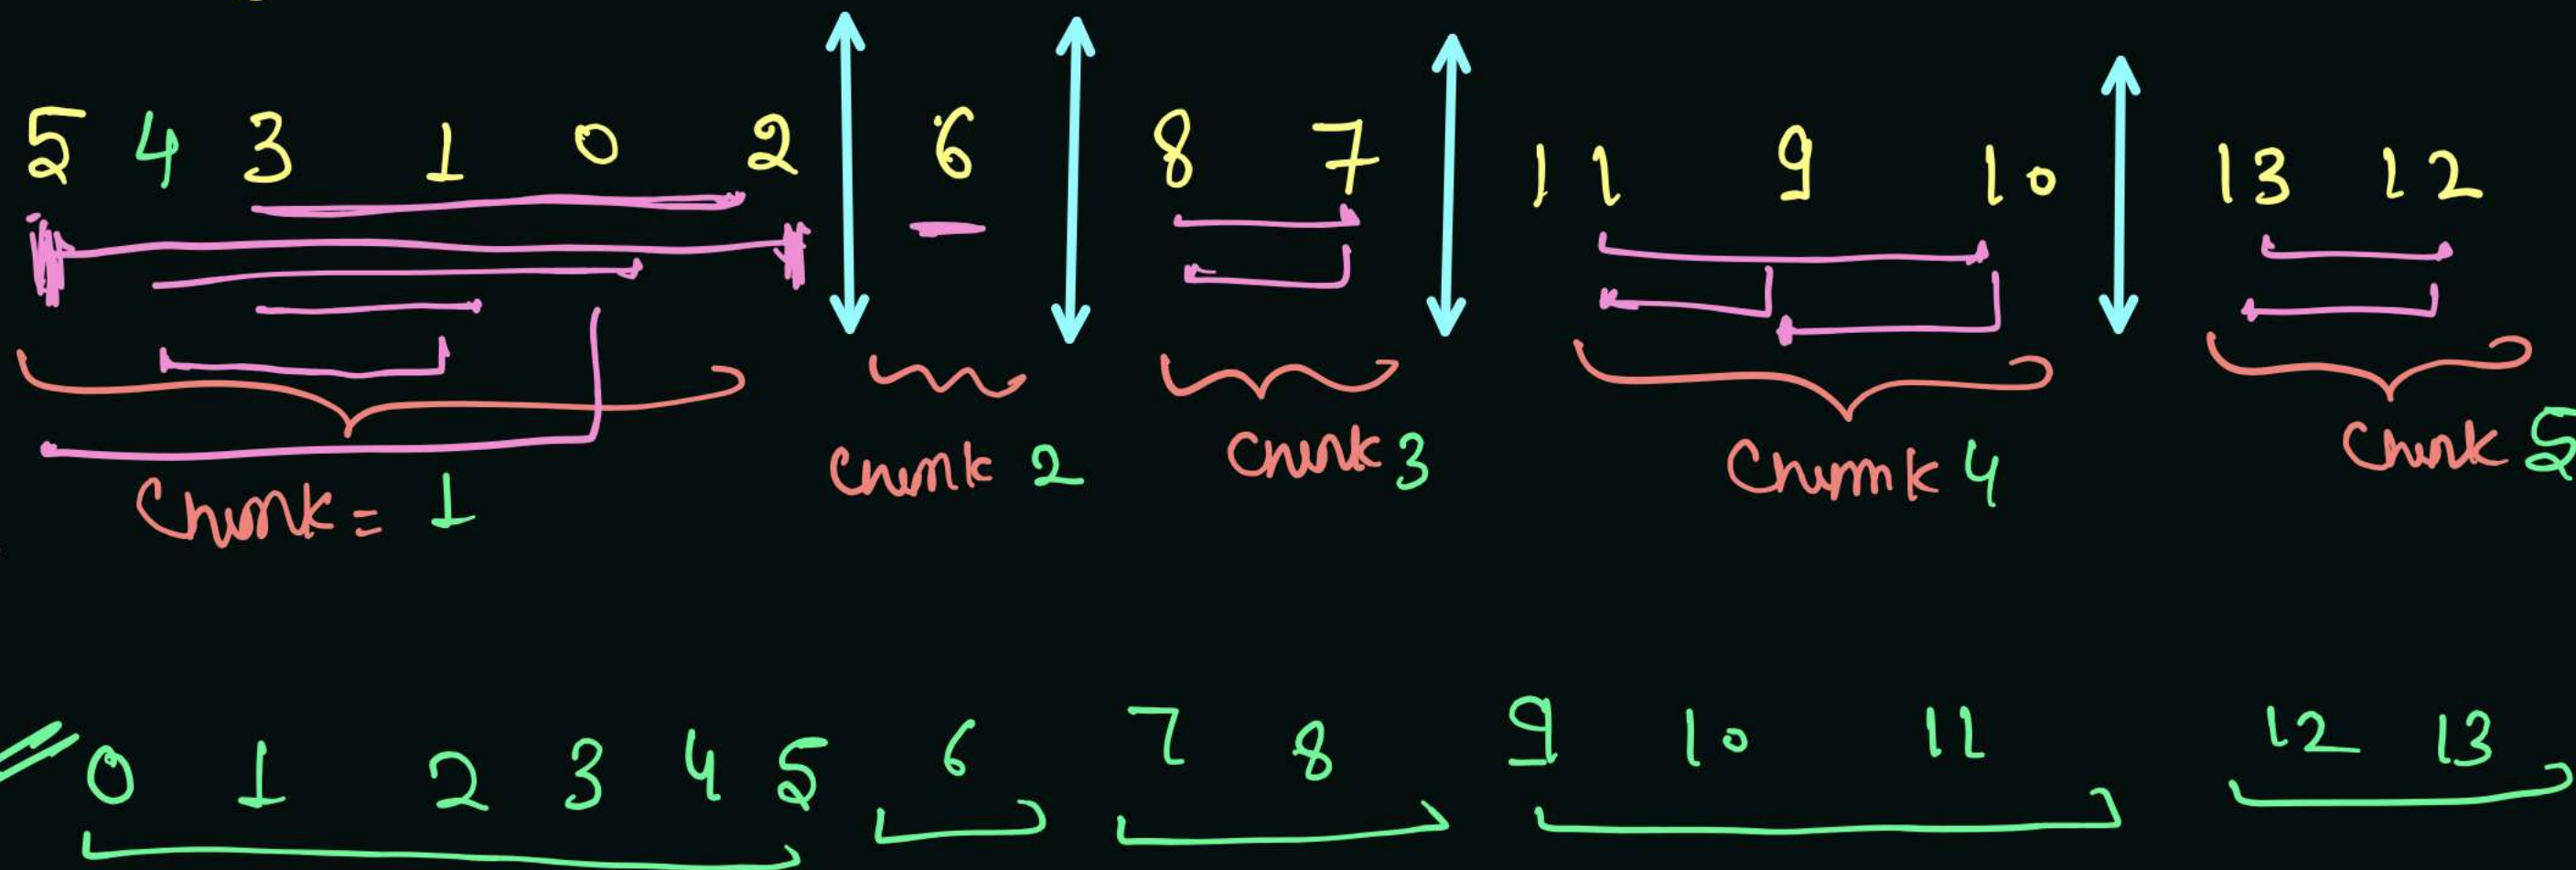 5 4 3 1 0 2 6 8 7 11 9 10 13 12
Chunk = 1 Chunk 2 Chunk 3 Chunk 4 Chunk 5
0 1 2 3 4 5 6 7 8 9 10 11 12 13